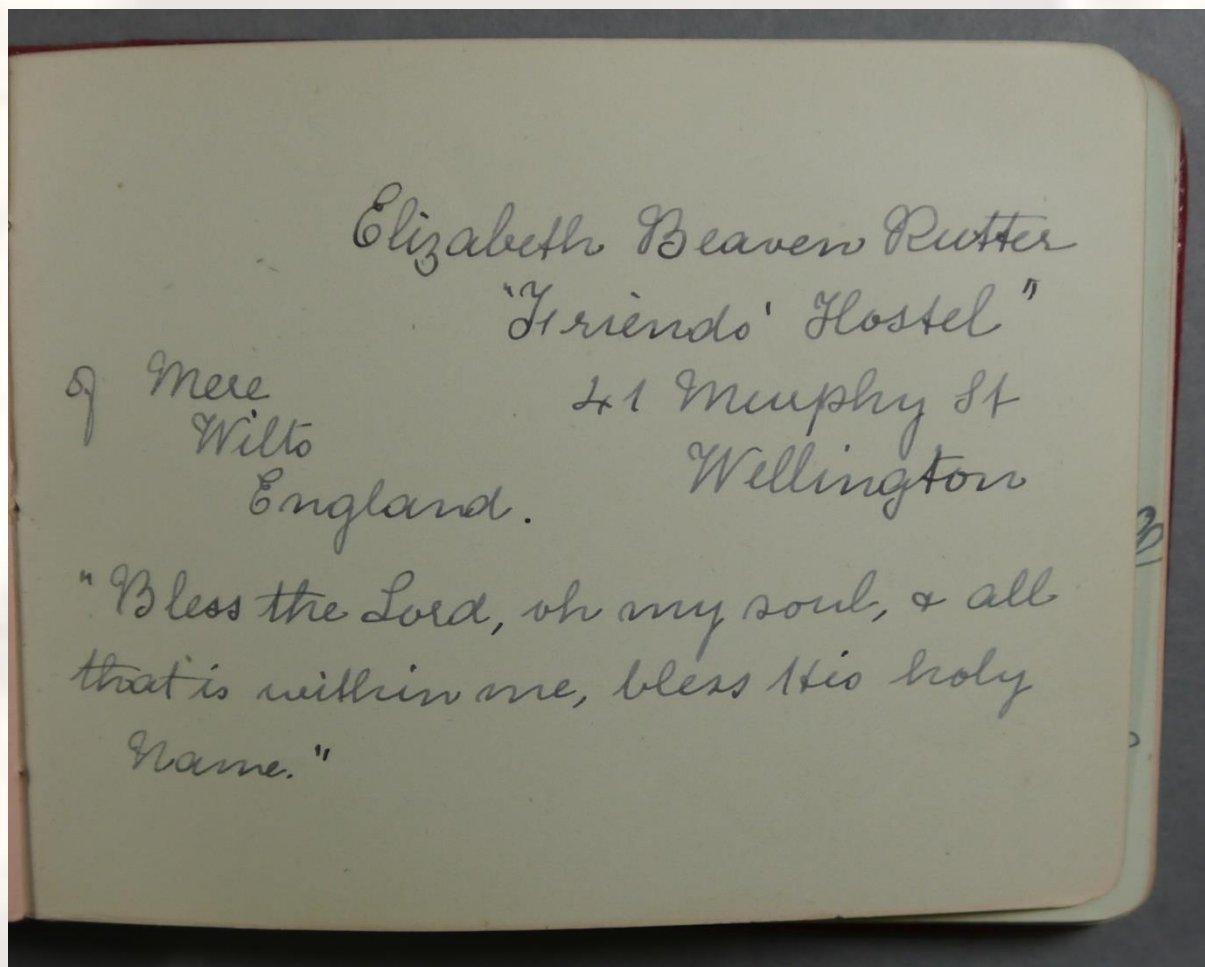 Elizabeth Beaven Rutter
"Friends' Hostel"
41 Murphy St
Wellington
of Mere
Wilts
England.
"Bless the Lord, oh my soul, & all
that is within me, bless His holy
Name."